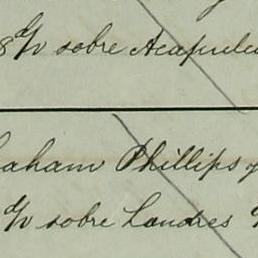 8 d/v sobre Acapulco
raham Phillips y
d/v sobre Londres